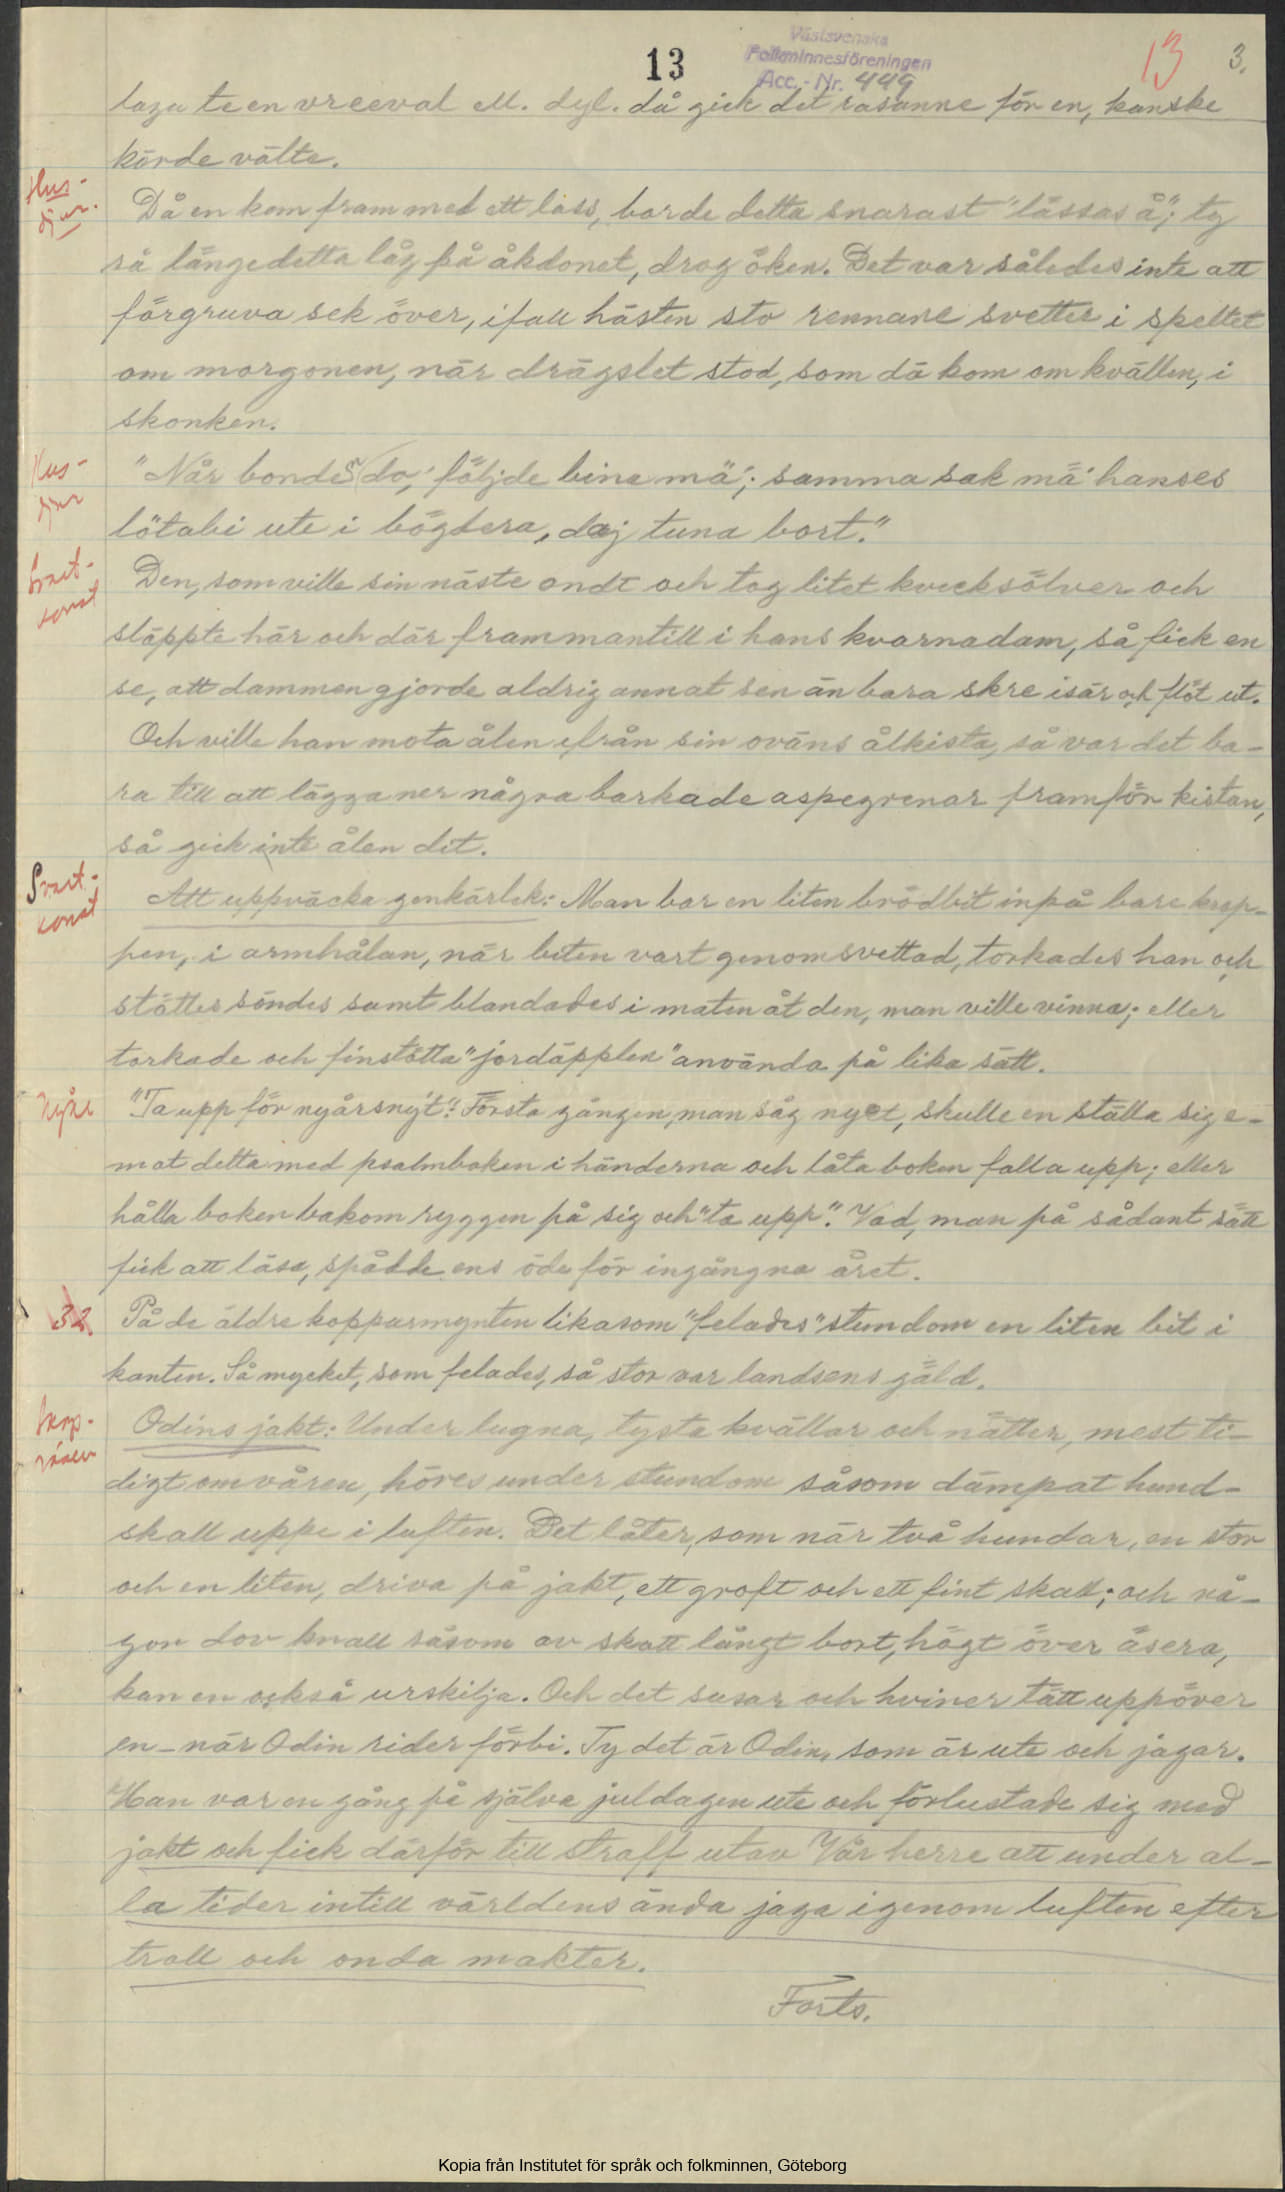 Västsvenska
Folkminnesföreningen
Acc.-Nr. 449
13
13
3.
laga te en vreeval ell. dyl. då gick det rasanne för en, kanske
körde välte.
Hus-
djur.
Då en kom fram med ett lass, borde detta snarast "lässas å"; ty
så länge detta låg på åkdonet, drog öken. Det var således inte att
förgruva sek över, ifall hästen sto rennane svetter i speltet
om morgonen, när drägslet stod, som dä kom om kvällen, i
skonken.
Hus-
djur
"Når bonden do, följde bina mä"; samma sak mä' hanses
lötabi ute i högdera, daj tuna bort."
Svart-
konst
Den, som ville sin näste ondt och tog litet kvecksölver och
släppte här och där frammantill i hans kvarnadam, så fick en
se, att dammen gjorde aldrig annat sen än bara skre isär och flöt ut.
Och ville han mota ålen ifrån sin ováns ålkista, så var det ba-
ra till att lägga ner några barkade aspegrenar framför kistan,
så gick inte ålen dit.
Svart-
konst
Att uppväcka genkärlek: Man bar en liten brödbit inpå bare krop-
pen, i armhålan, när biten vart genomsvettad, torkades han och
stöttes söndes samt blandades i maten åt den, man ville vinna; eller
torkade och finstötta "jordäpplen" använda på lika sätt.
Nyår
"Ta upp för nyårsnýt." Första gången, man såg nyet, skulle en ställa sig e-
mot detta med psalmboken i händerna och låta boken falla upp; eller
hålla boken bakom ryggen på sig och "ta upp". Vad, man på sådant sätt
fick att läsa, spådde ens öde för ingångna året.
32
På de äldre kopparmynten likasom "felades" stundom en liten bit i
kanten. Så mycket, som felades, så stor var landsens gäld.
Odins jakt: Under lugna, tysta kvällar och nätter, mest ti-
digt om våren, höres under stundom såsom dämpat hund-
skall uppe i luften. Det låter, som när två hundar, en stor
och en liten, driva på jakt, ett groft och ett fint skall; och nå-
gon dov knall såsom av skott långt bort, högt över åsera,
kan en också urskilja. Och det susar och hviner tätt uppöver
en – när Odin rider förbi. Ty det är Odin, som är ute och jagar.
Han var en gång på själva juldagen ute och förlustade sig med
jakt och fick därför till straff utav Vår herre att under al-
la tider intill världens ända jaga igenom luften efter
troll och onda makter.
Forts.
Kopia från Institutet för språk och folkminnen, Göteborg